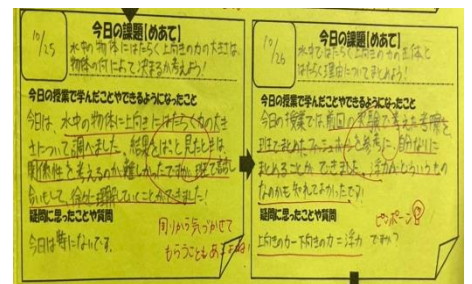 10/25
今日の課題【めあて】
水中の物体にはたらく上向きの力の大きさは、
物体の何によって決まるか考えよう！
今日の授業で学んだことやできるようになったこと
今日は、水中の物体に上向きにはたらく力の大き
さについて調べました。結果をぱっと見たときは、
関係性を考えるのが難しかったですが、班で話し
合いもして、徐々に理解していくことができました！
疑問に思ったことや質問
今日は特にないです。
周りから気づかせて
もらうこともあるよね！
10/26
今日の課題【めあて】
水中ではたらく上向きの力の正体と
はたらく理由についてまとめよう！
今日の授業で学んだことやできるようになったこと
今日の授業では、前回の実験で考えた考察を
班でまとめた
を参考に、自分なりに
まとめることができました。浮力がどういうもの
なのかも知れてよかったです！
疑問に思ったことや質問
ピンポーン
上向きの力－下向きの力＝浮力 ですか？